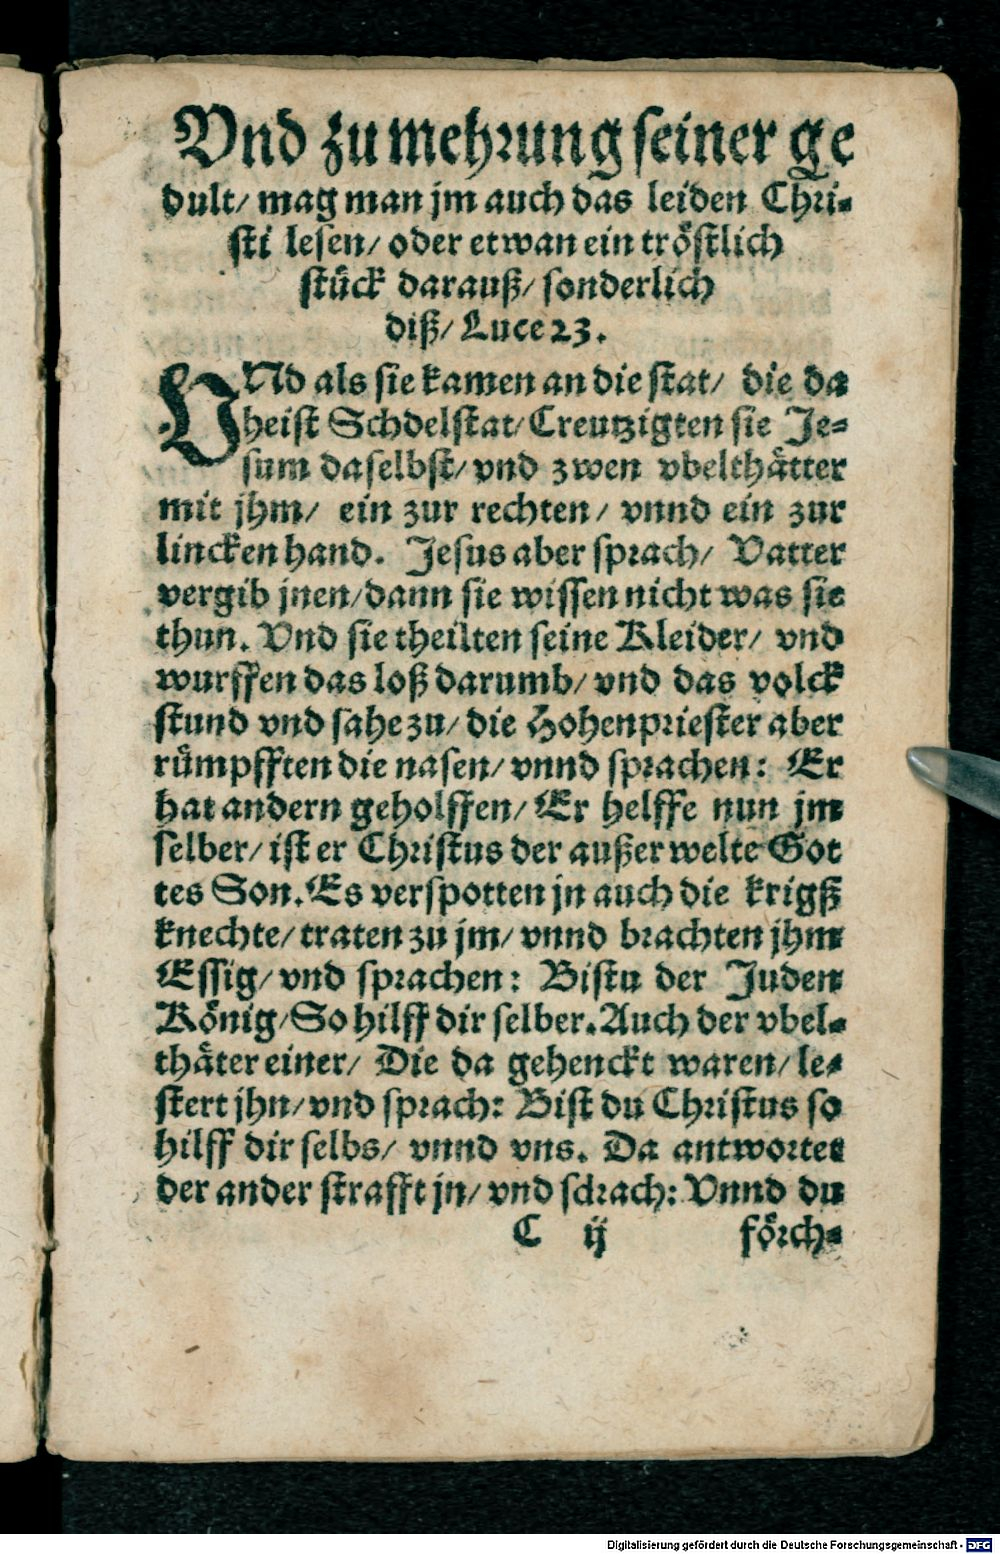 Vnd zu mehrung seiner ge
dult/ mag man jm auch das leiden Chri-
sti lesen/ oder etwan ein tröstlich
stück darauß/ sonderlich
diß/ Luce 23.
VNd als sie kamen an die stat/ die da
heist Schdelstat/ Creutzigten sie Je-
sum daselbst/ vnd zwen vbelthätter
mit jhm/ ein zur rechten/ vnnd ein zur
lincken hand. Jesus aber sprach/ Vatter
vergib jnen/ dann sie wissen nicht was sie
thun. Vnd sie theilten seine Kleider/ vnd
wurffen das loß darumb/ vnd das volck
stund vnd sahe zu/ die Hohenpriester aber
rümpfften die nasen/ vnnd sprachen: Er
hat andern geholffen/ Er helffe nun jm
selber/ ist er Christus der außerwelte Got
tes Son. Es verspotten jn auch die krigß
knechte/ traten zu jm/ vnnd brachten jhm
Essig/ vnd sprachen: Bistu der Juden
König/ So hilff dir selber. Auch der vbel-
thäter einer/ Die da gehenckt waren/ le-
stert jhn/ vnd sprach: Bist du Christus so
hilff dir selbs/ vnnd vns. Da antwortet
der ander strafft jn/ vnd schrach: Vnnd du
C ij förch-
Digitalisierung gefördert durch die Deutsche Forschungsgemeinschaft - DFG